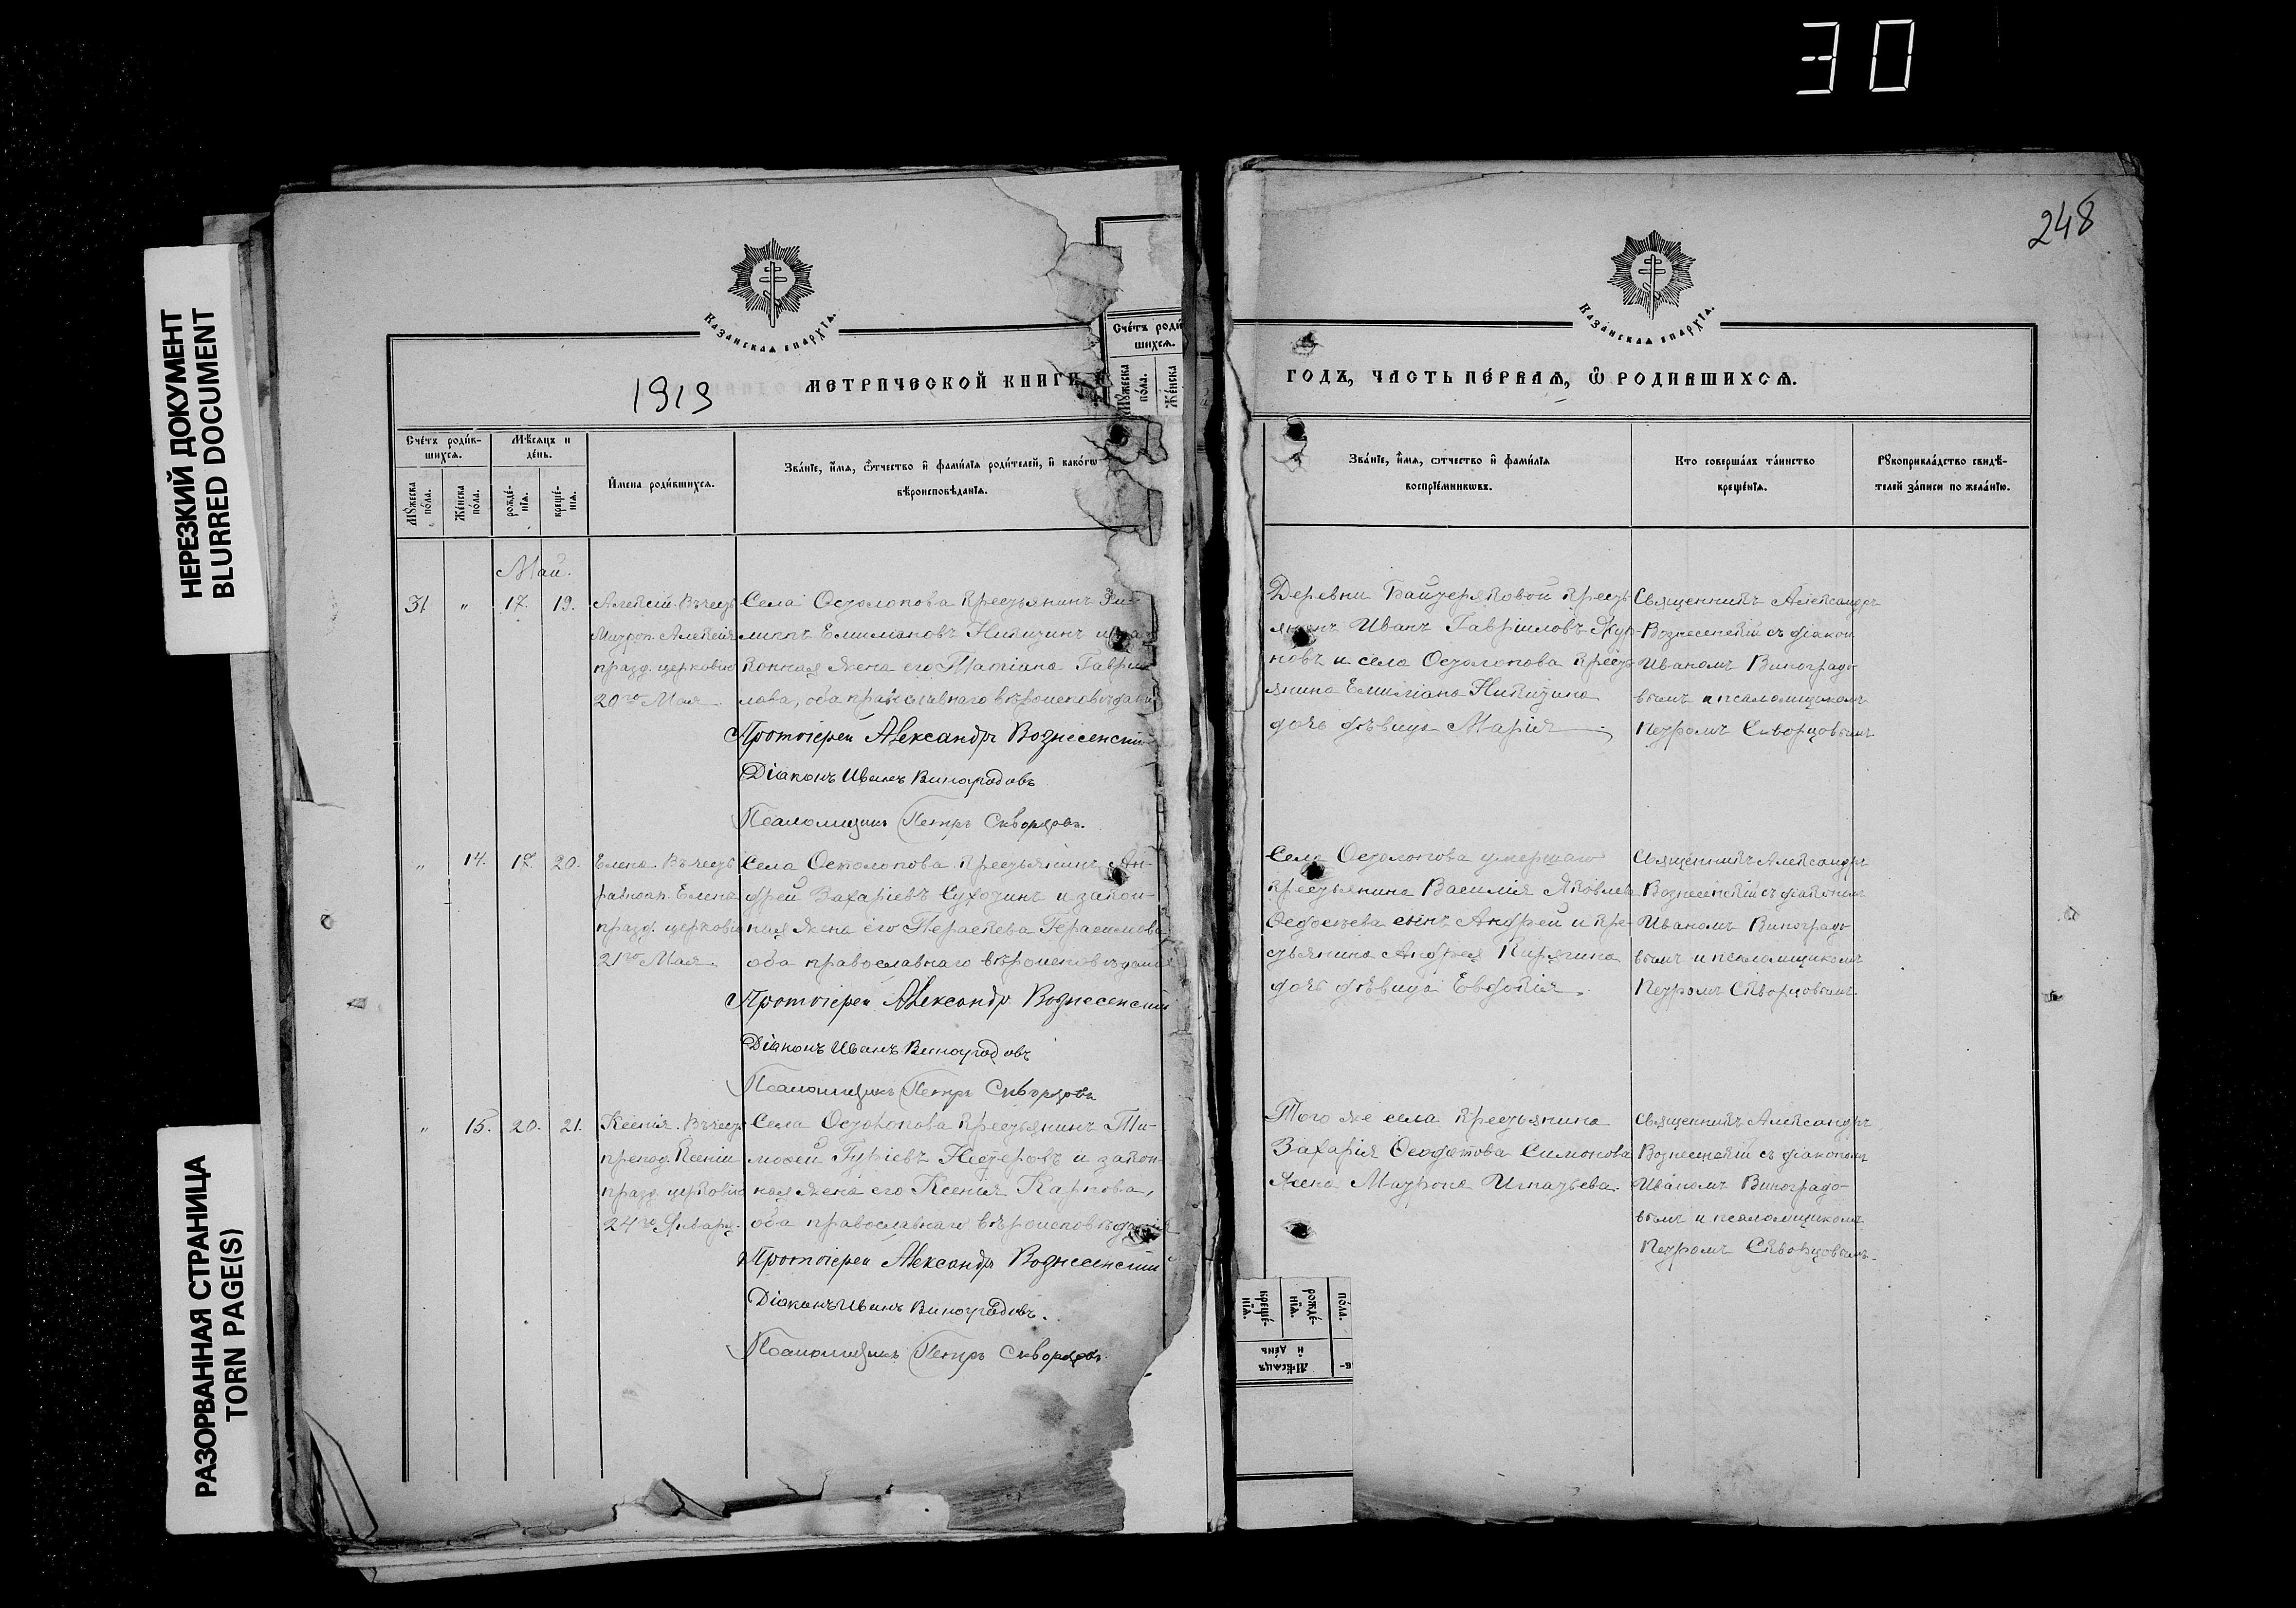 30
248
НЕРЕЗКИЙ ДОКУМЕНТ
BLURRED DOCUMENT
РАЗОРВАННАЯ СТРАНИЦА
TORN PAGE(S)
Казанскаѧ епархїѧ.
1919
МЕТРИЧЕСКОЙ КНИГИ
Счетъ родив-
шихсѧ.
Мѣсяцъ и
день.
Мужеска
пола.
Женска
пола.
рожде-
нїѧ.
креще-
нїѧ.
Имена родившихсѧ.
Званїе, имѧ, ѿчество и фамилїѧ родителей, и какогѡ
вѣроисповѣданїѧ.
Счетъ роди
шихсѧ.
Мужеска
пола.
Женска
Май.
31 " 17. 19.
Алексій. Въ честь
Митроп. Алексія
празд. церковію
20го Мая.
Села Остолопова крестьянинъ
Емиліановъ Никитинъ и за-
конная жена его Татіана Гаврiи-
лова, оба православнаго вѣроисповѣданія
Протоіерей Александръ Вознесенскій
Діаконъ Иванъ Виноградовъ
Псаломщикъ Петръ Скворцовъ.
" 14. 17. 20.
Елена. Въ честь
равноап. Елены
празд. церковію
21го Мая.
Села Остолопова крестьянинъ Ан-
дрей Захаріевъ Сухотинъ и закон-
ная жена его Параскева Герасимова
оба православнаго вѣроисповѣданія
Протоіерей Александръ Вознесенскій
Діаконъ Иванъ Виноградовъ
Псаломщикъ Петръ Скворцовъ
" 15. 20. 21.
Ксенія. Въ честь
препод. Ксеніи
празд. церковію
24го Январ.
Села Остолопова крестьянинъ Ти-
мофей Гуріевъ Нестеровъ и закон-
ная жена его Ксенія Карпова,
оба православнаго вѣроисповѣданія
Протоіерей Александръ Вознесенскій
Діаконъ Иванъ Виноградовъ.
Псаломщикъ Петръ Скворцовъ.
Казанскаѧ епархїѧ.
ГОДЪ, ЧАСТЬ ПЕРВАѦ, Ѡ РОДИВШИХСѦ.
Званїе, имѧ, ѿчество и фамилїѧ
воспрїемникѡвъ.
Кто совершалъ таинство
крещенїѧ.
Рукоприкладство свидѣ-
телей записи по желанїю.
Деревни Байтеряковой кресть-
янинъ Иванъ Гавріиловъ
новъ и села Остолопова кресть-
янина Емиліана Никитина
дочь дѣвица Марія.
Священникъ Александръ
Вознесенскій съ діакон.
Иваномъ Виноградо-
вымъ и псаломщикомъ
Петромъ Скворцовымъ
Села Остолопова умершаго
крестьянина Василія Яковлева
Федосѣева сынъ Андрей и кре-
стьянина Андрея Кирягина
дочь дѣвица Евдокія.
Священникъ Александръ
Вознесенскій съ діакономъ
Иваномъ Виноградо-
вымъ и псаломщикомъ
Петромъ Скворцовымъ.
Того же села крестьянина
Захарія Феодотова Симонова
жена Матрона Игнатьева.
Священникъ Александръ
Вознесенскій съ діакономъ
Иваномъ Виноградо-
вымъ и псаломщикомъ
Петромъ Скворцовымъ.
креще-
нїѧ.
рожде-
нїѧ.
пола.
Мѣсяцъ
и день